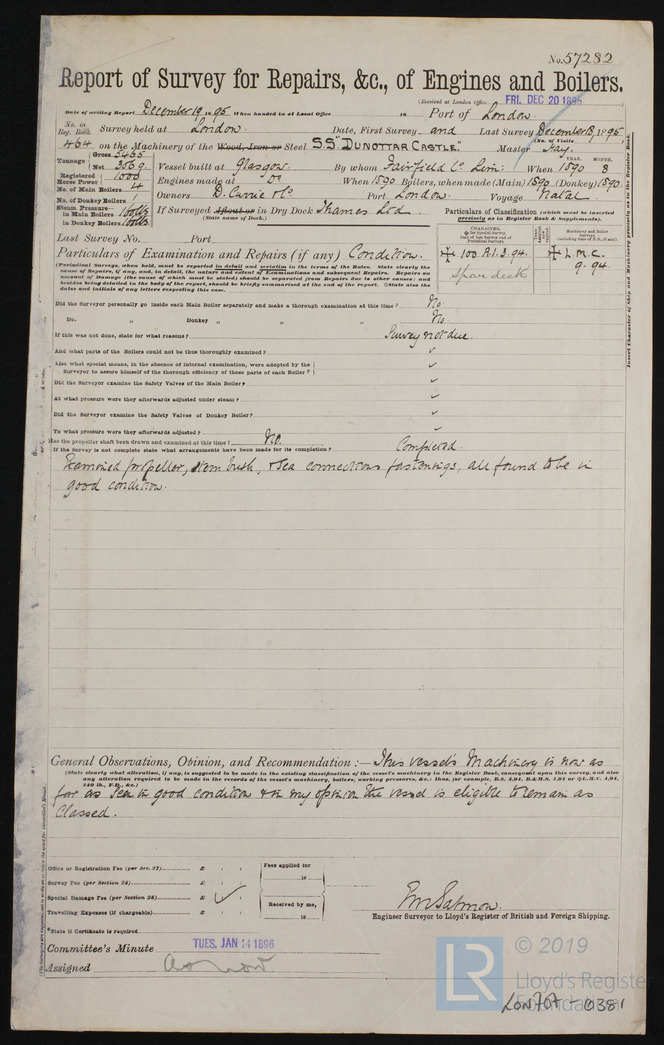 No. 57232
Report of Survey for Repairs, &c., of Engines and Boilers.
(Received at London Office FRI. DEC 20 1895
Date of writing Report December 19 1895 When handed in at Local Office 18 Port of London.
No. in Reg. Book. Survey held at London. Date, First Survey and Last Survey December 18, 1895
(No. of Visits
464 on the Machinery of the Wood, Iron or Steel S.S. "DUNOTTAR CASTLE." Master Hay.
Tonnage Gross 5465 Net 3069 Vessel built at Glasgow. By whom Fairfield Co. Lim: When 1890 YEAR. MONTH. 8
Registered Horse Power 1000 Engines made at Do When 1890 Boilers, when made (Main) 1890 (Donkey) 1890.
No. of Main Boilers 4 Owners D. Currie & Co. Port London. Voyage Natal.
No. of Donkey Boilers
Steam Pressure in Main Boilers 160 lbs If Surveyed Afloat or in Dry Dock Thames Ltd.
in Donkey Boilers (State name of Dock.)
Particulars of Classification (which must be inserted precisely as in Register Book & Supplements).
Last Survey No. Port
CHARACTER.
Machinery and Boiler Surveys
✠ 100 A.1. 3. 94. ✠ L.M.C. 9. 94
Spar deck
Particulars of Examination and Repairs (if any) Condition.
(Periodical Surveys, when held, must be reported in detail and seriatim in the terms of the Rules. State clearly the
cause of Repairs, if any, and, in detail, the nature and extent of Examinations and subsequent Repairs. Repairs on
account of Damage (the cause of which must be stated) should be separated from Repairs due to other causes; and
besides being detailed in the body of the report, should be briefly summarised at the end of the report. State also the
dates and initials of any letters respecting this case.
Insert Character of Ship and Machinery precisely as in the Register Book.
Did the Surveyor personally go inside each Main Boiler separately and make a thorough examination at this time? No.
Do. " Donkey " " " No.
If this was not done, state for what reasons? Survey not due.
And what parts of the Boilers could not be thus thoroughly examined? ✓
Also what special means, in the absence of internal examination, were adopted by the
Surveyor to assure himself of the thorough efficiency of those parts of each Boiler? ✓
Did the Surveyor examine the Safety Valves of the Main Boiler? ✓
At what pressure were they afterwards adjusted under steam? ✓
Did the Surveyor examine the Safety Valves of Donkey Boiler? ✓
To what pressure were they afterwards adjusted? ✓
Has the propeller shaft been drawn and examined at this time? No.
If the Survey is not complete state what arrangements have been made for its completion? Completed.
Examined propeller, stern bush, & Sea connections fastenings, all found to be in
good condition.
General Observations, Opinion, and Recommendation:— This vessel's Machinery is now as
(State clearly what alteration, if any, is suggested to be made in the existing classification of the vessel's machinery in the Register Book, consequent upon this survey, and also
any alteration required to be made in the records of the vessel's machinery, boilers, working pressures, &c.: thus, for example, B.S. 4,94, B.&M.S. 4,94 or ✠L.M.C. 4,94,
140 lb., F.D., &c.)
far as seen in good condition & in my opinion the vessel is eligible to remain as
Classed.
Office or Registration Fee (per Sec. 27) £ : :
Survey Fee (per Section 28) £ : :
Special Damage Fee (per Section 28) £ : :
Travelling Expenses (if chargeable) £ : :
Fees applied for
18
Received by me,
18
*State if Certificate is required
EM Salmon.
Engineer Surveyor to Lloyd's Register of British and Foreign Shipping.
Committee's Minute TUES. JAN 14 1896
Assigned As now
LR
© 2019
Lloyd's Register
Foundation
LON707-0381